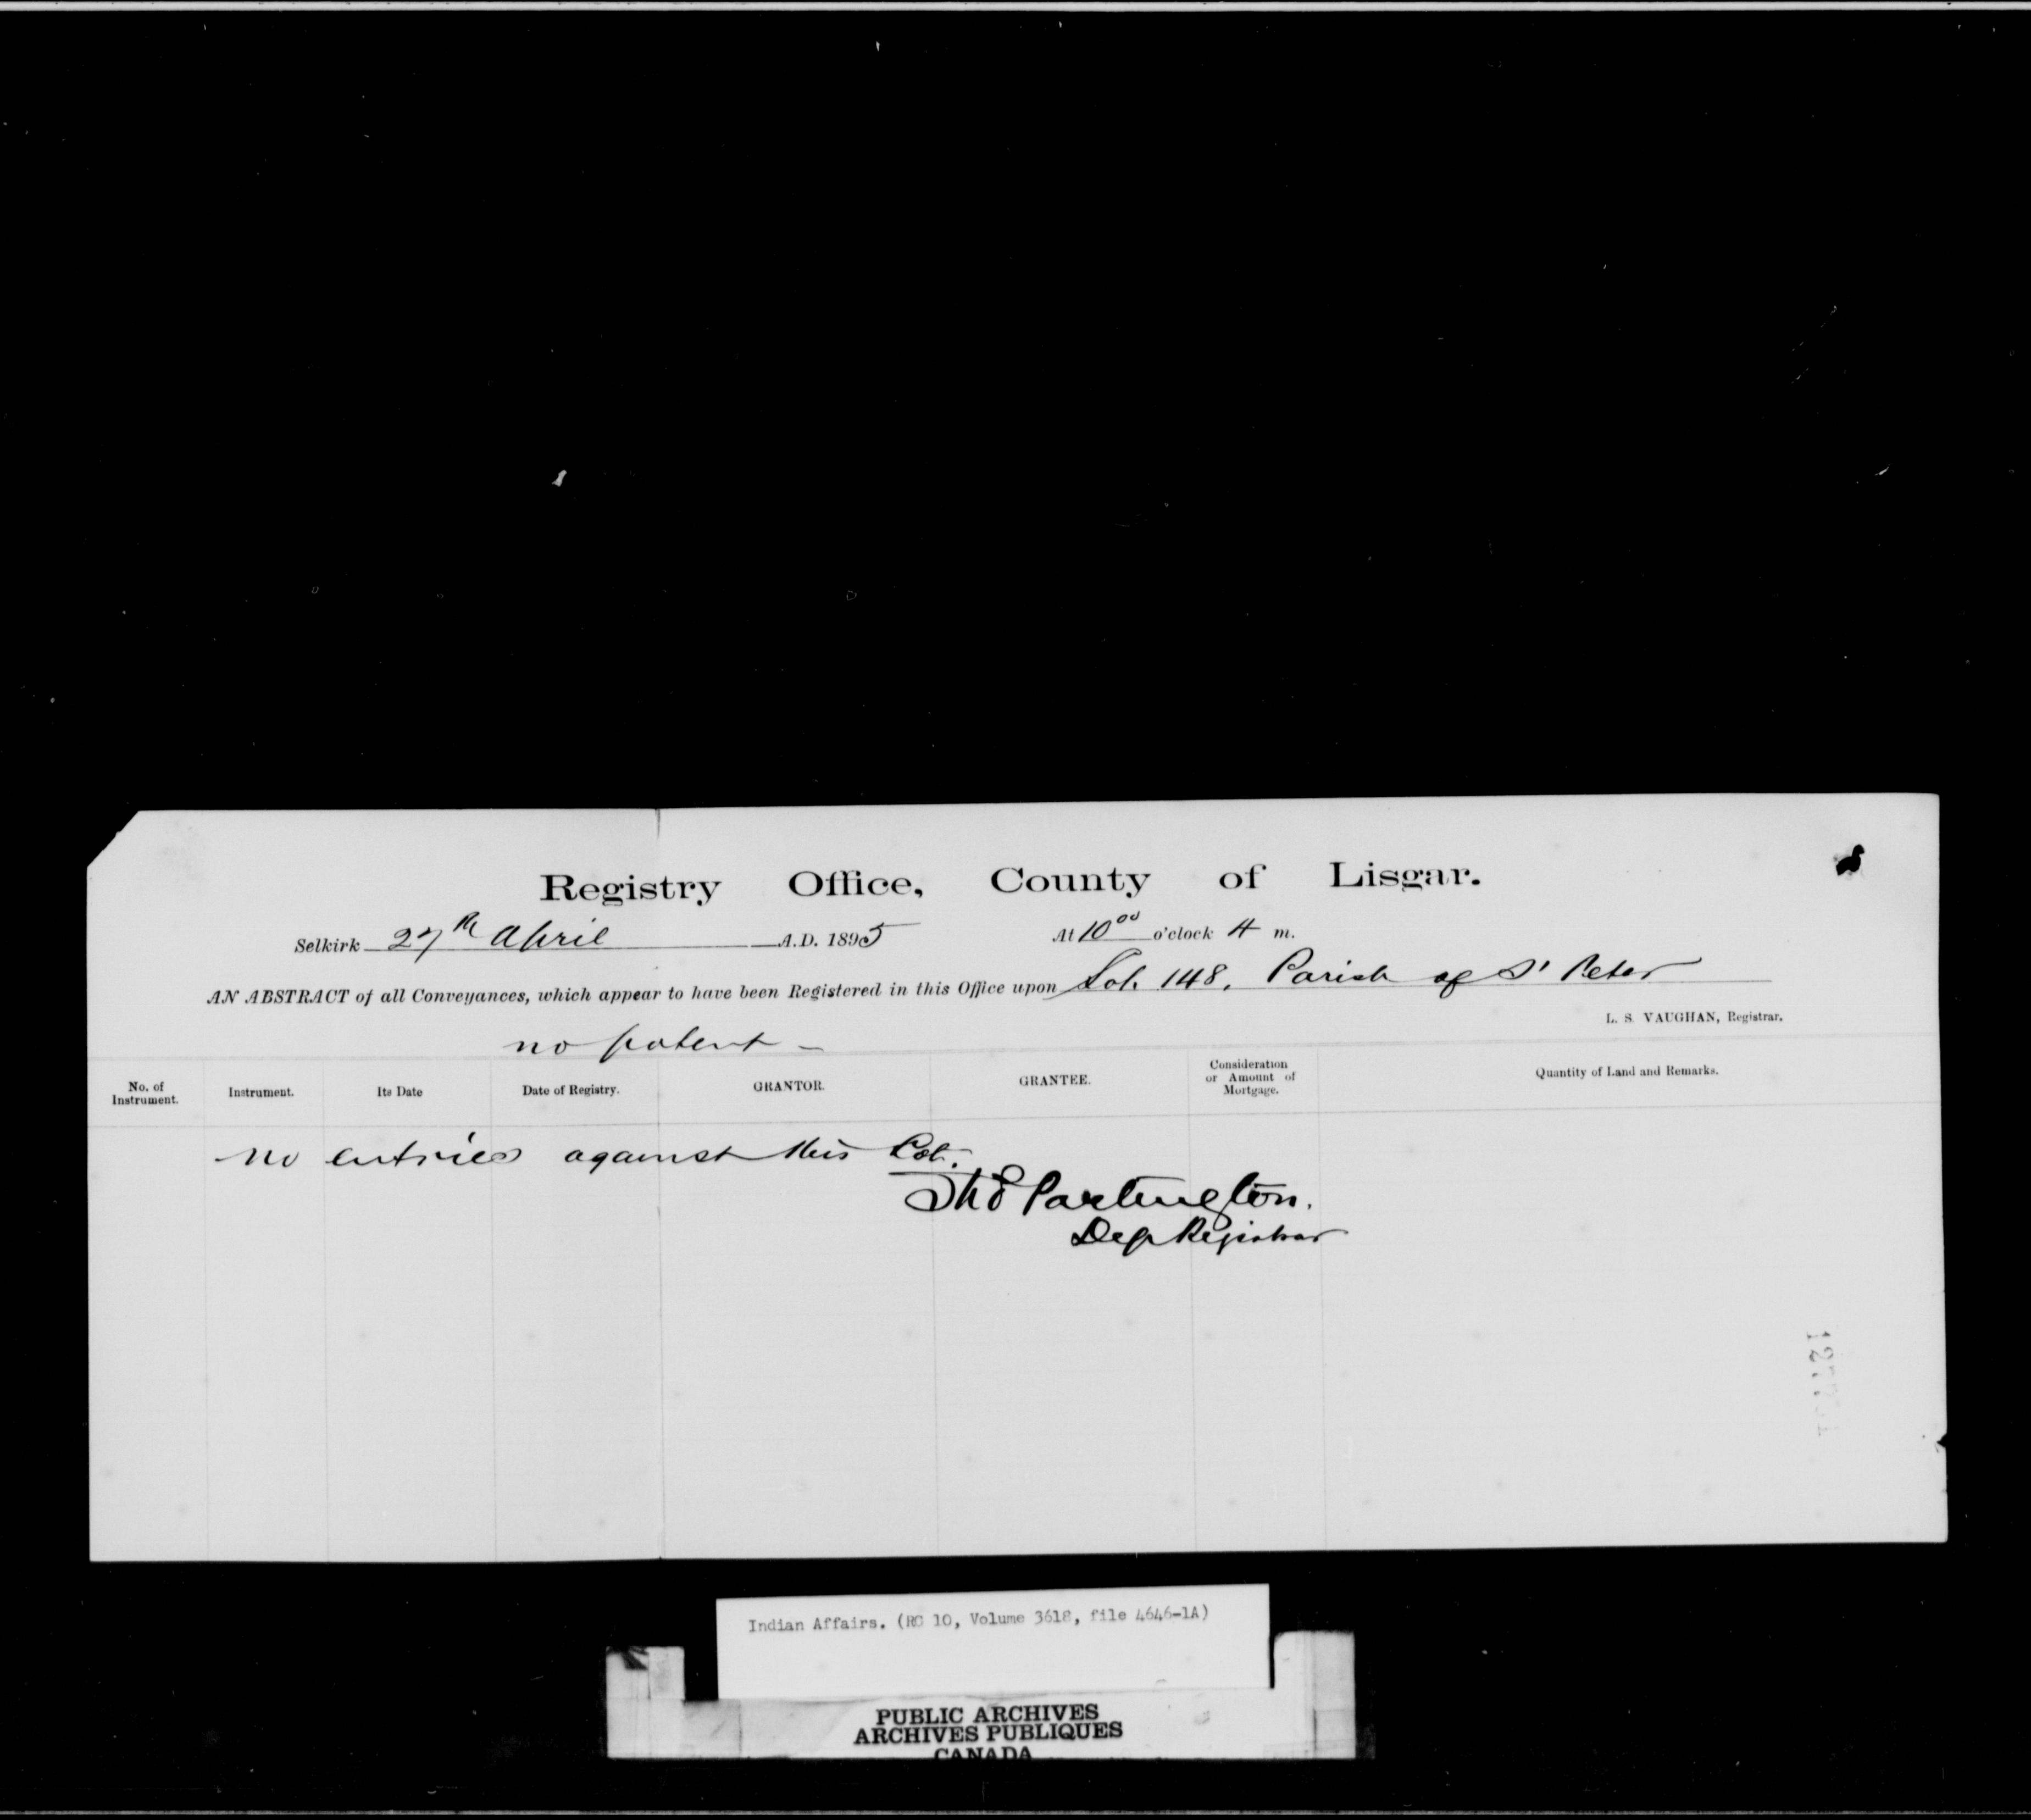 Registry Office, County of Lisgar.
Selkirk 27th April A.D. 1895 At 10 00 o'clock A m.
AN ABSTRACT of all Conveyances, which appear to have been Registered in this Office upon Lot 148, Parish of St Peter
L. S. VAUGHAN, Registrar.
no patent –
No. of Instrument. Instrument. Its Date Date of Registry. GRANTOR. GRANTEE. Consideration or Amount of Mortgage. Quantity of Land and Remarks.
no entries against this Lot.
Partington.
Dep Registrar
Indian Affairs. (RG 10, Volume 3618, file 4646-1A)
PUBLIC ARCHIVES
ARCHIVES PUBLIQUES
CANADA